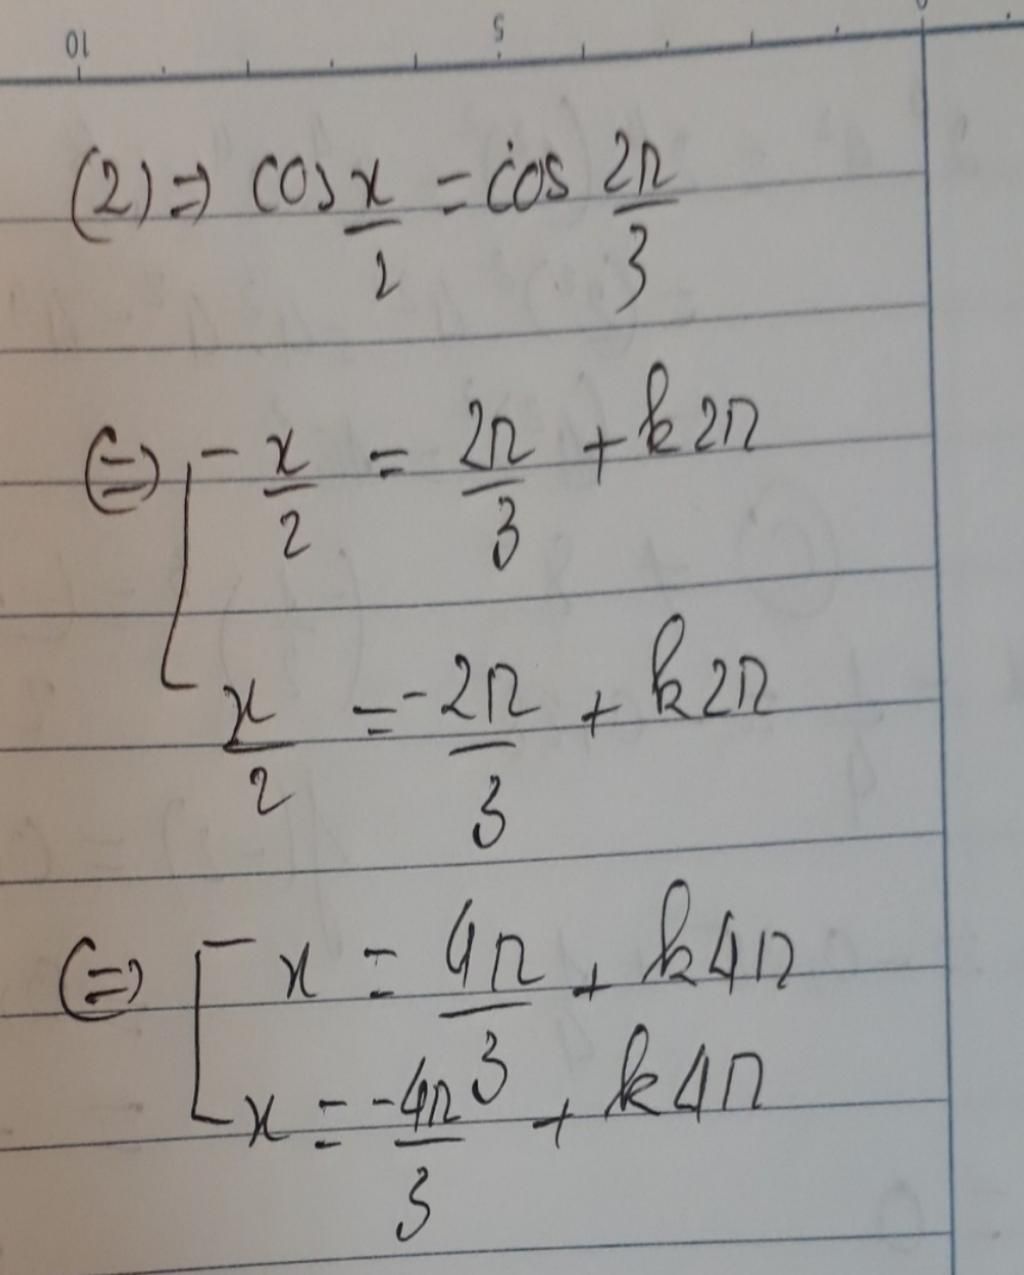 10 5 0
(2) ⇒ cos x/2 = cos 2π/3
⇔ [ x/2 = 2π/3 + k2π
x/2 = -2π/3 + k2π
⇔ [ x = 4π/3 + k4π
x = -4π/3 + k4π